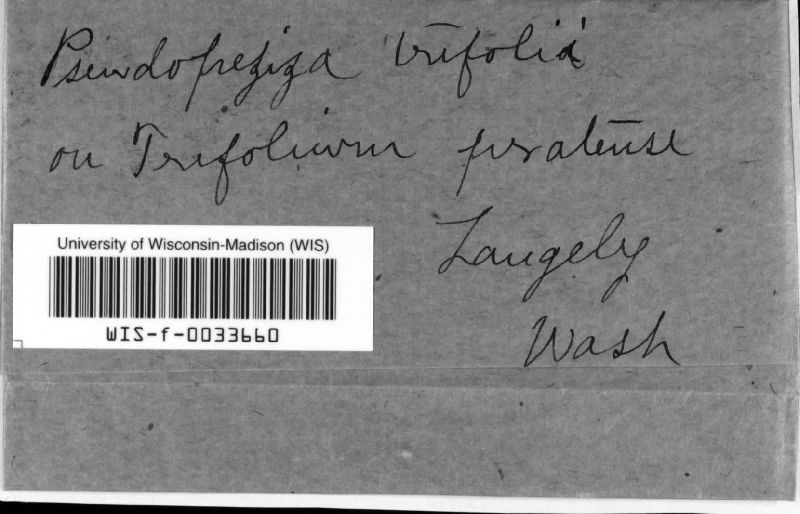 Pseudopeziza trifolii
on Trifolium pratense
Langely
Wash
University of Wisconsin-Madison (WIS)
WIS-f-0033660